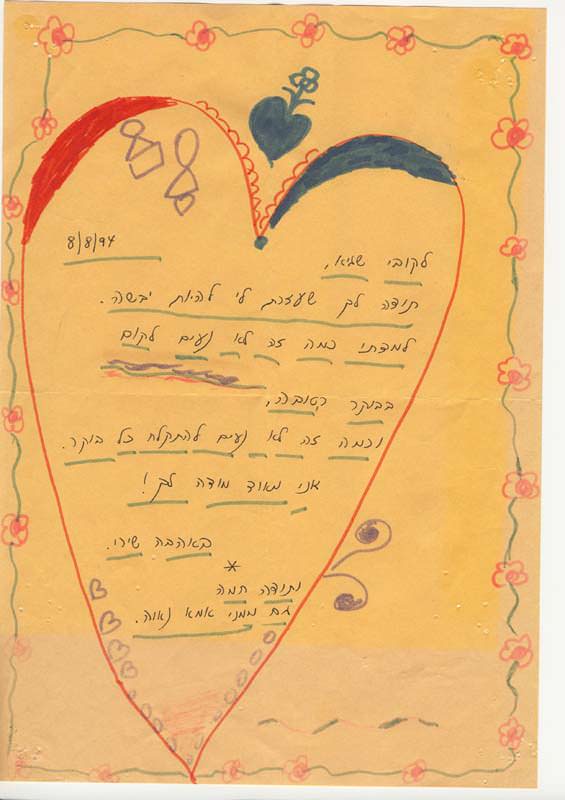 8/8/94
לקובי שגיא,
תודה לך שעזרת לי להיות יבשה.
למדתי כמה זה לא נעים לקום
בבוקר רטובה,
וכמה זה לא נעים להתקלח כל בוקר.
אני מאוד מודה לך!
באהבה שירי.
*
ותודה חמה
גם ממני אמא נאוה.